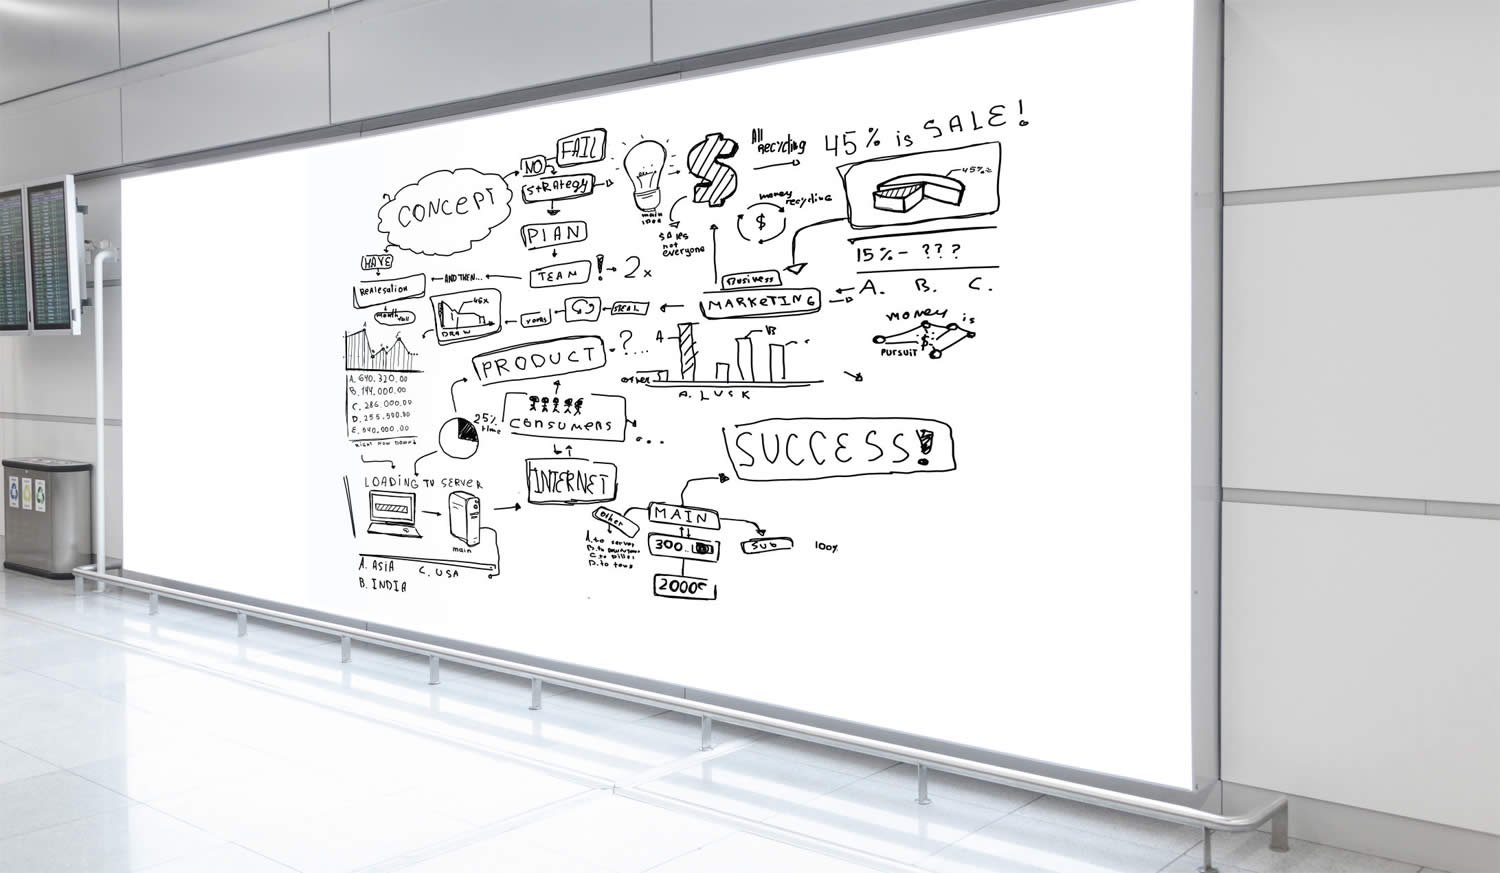 45% is SALE!
All
Recycling
FAIL
NO
Strategy
CONCEPT
money
recycling
$
45%
main
idea
SALES
not
everyone
PLAN
15% - ???
HAVE
TEAM ! 2x
AND THEN...
Realesation
Business
MARKETING
A. B. C.
month
46x
DRAW
works
DEAL
money is
pursuit
$
PRODUCT ?...
A
B
other
A. LUSK
A. 640.320.00
B. 194.000.00
C. 286.000.00
D. 255.500.00
E. 540.000.00
RIGHT NOW DOWN
25%
time
CONSUMERS
...
SUCCESS!
LOADING TO SERVER
INTERNET
main
other
MAIN
A. to server
300..
Sub
100%
2000
A. ASIA
C. USA
B. INDIA